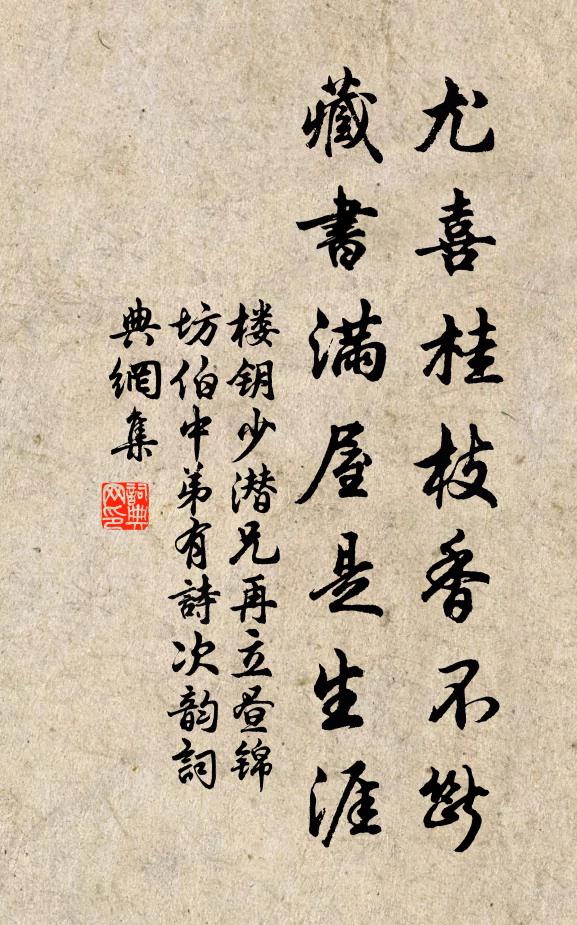 尤喜桂枝香不斷
藏書滿屋是生涯
楼钥少潜兄再立昼锦
坊伯中弟有詩次韵詞
典網集
詞典
网印